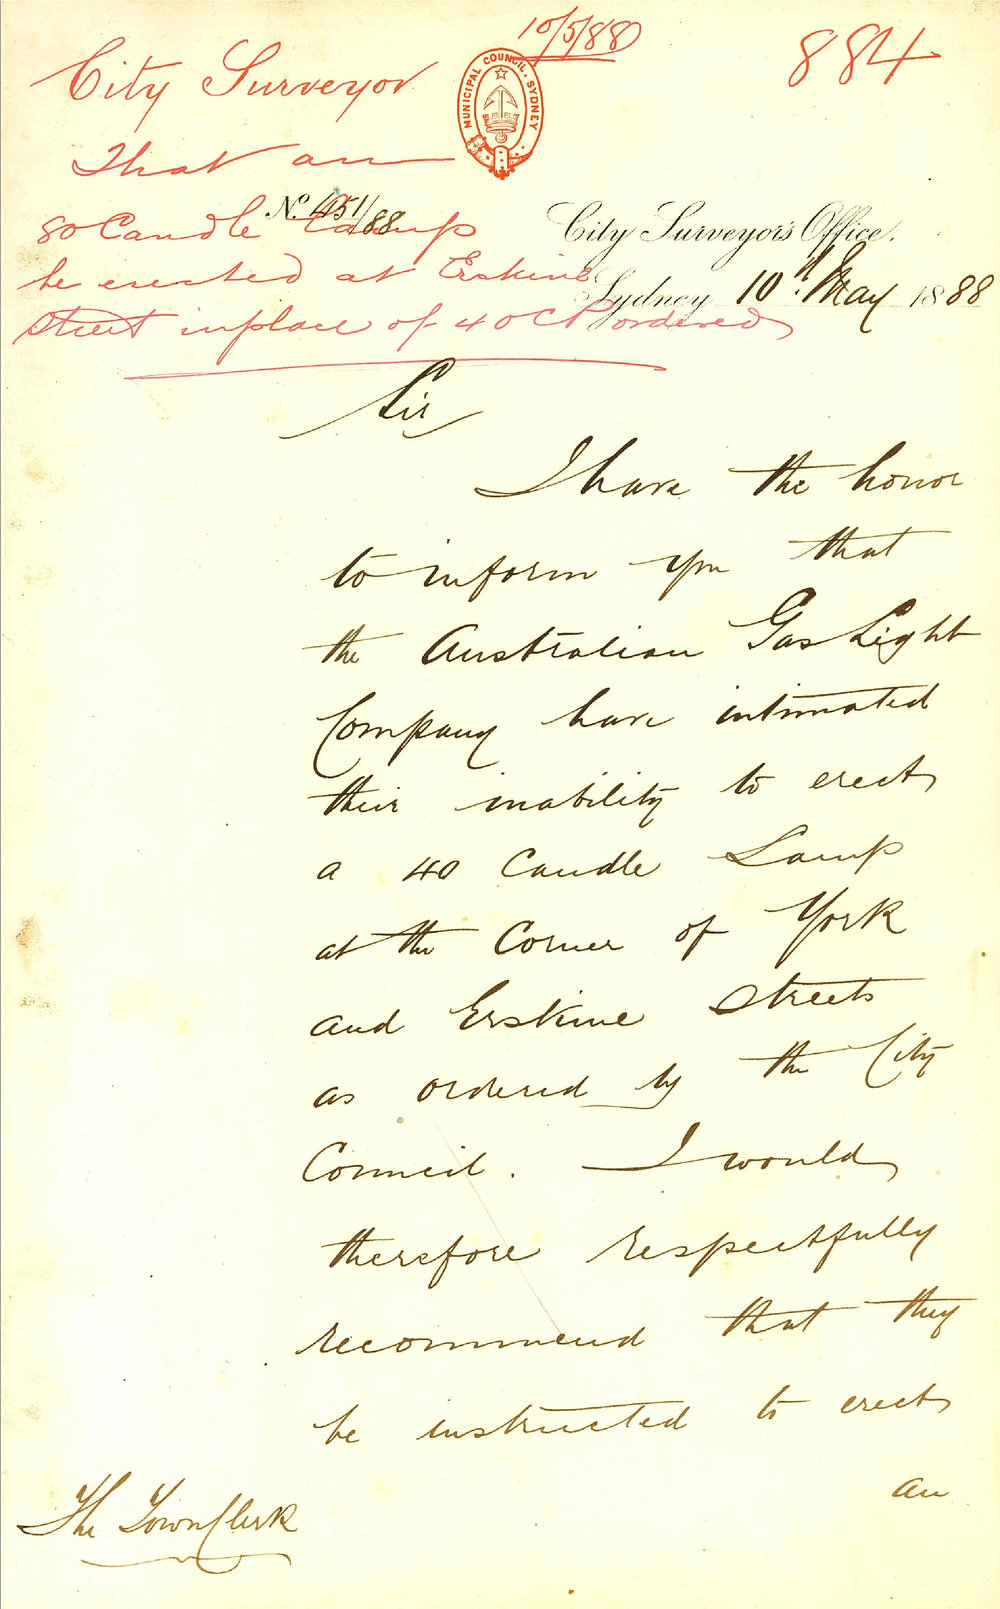 10/5/88
884
City Surveyor
MUNICIPAL COUNCIL. SYDNEY
That an
80 Candle Lamp
be erected at Erskine
Street in place of 40 CP ordered
No. 451/88
City Surveyor's Office.
Sydney 10th May 1888
Sir
I have the honor
to inform you that
the Australian Gas Light
Company have intimated
their inability to erect
a 40 Candle Lamp
at the Corner of York
and Erskine Streets
as ordered by the City
Council. I would
therefore respectfully
recommend that they
be instructed to erect
an
The Town Clerk